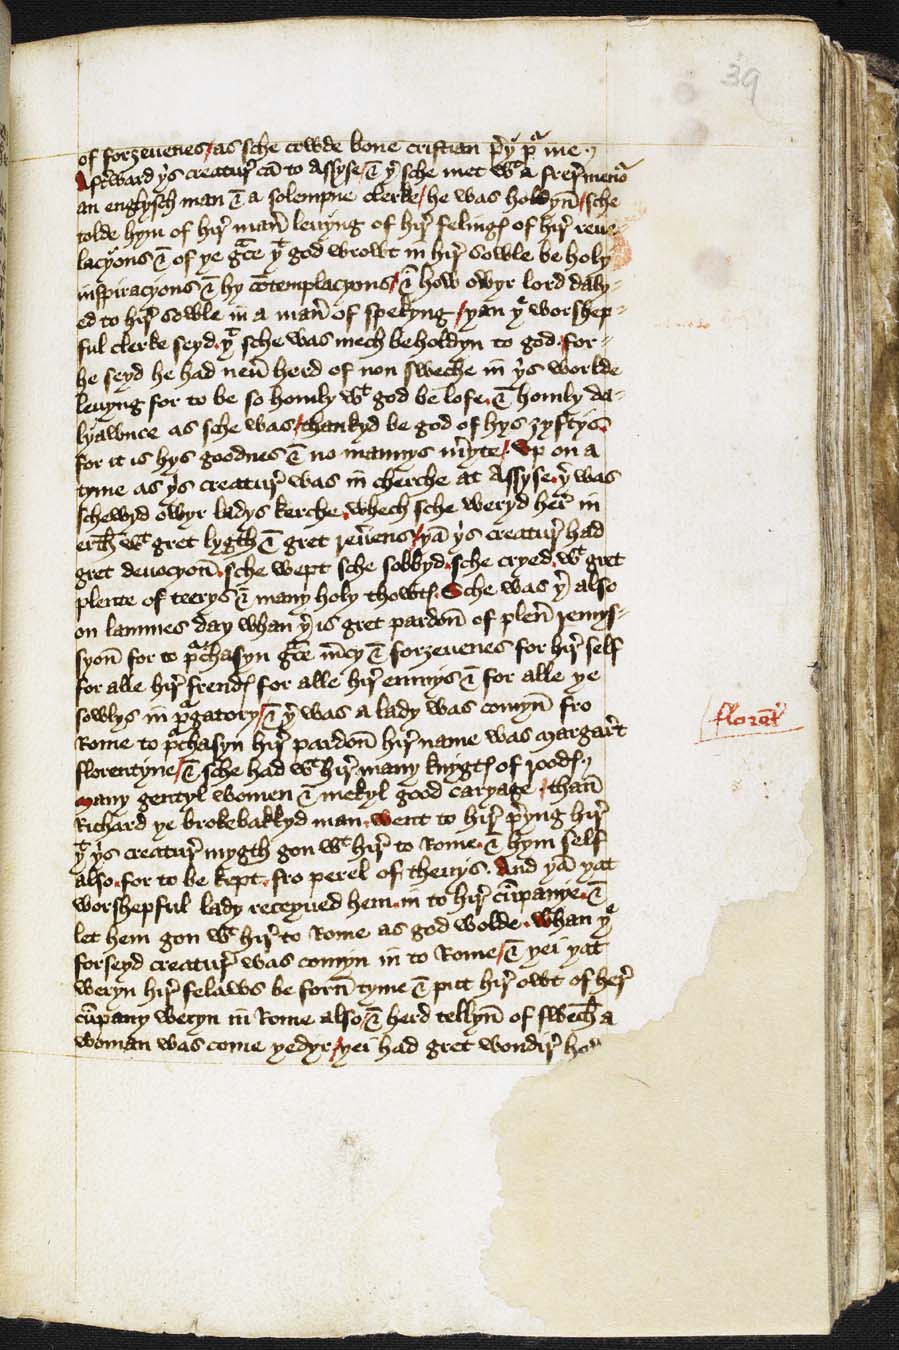 39
of forȝeuenes / as sche cowde bone cristian p̱ͬy p̱ͣ me .,
Aftͬward yͥs creatuꝛ̉ cā to Assyse / & yͬ sche met wͭ a frerͬ menoͬ
an englysch man & a solempne clerke / he was holdyn̄ / sche
tolde hym of hirͬ manͬ leuyng of hirͬ felingꝭ of hirͬ reue-
lacyons & of ye gͣce yͭ god wrowt in hirͬ sowle be holy
inspiracyons & hy cōtemplacyons / & how owyr lord daly-
ed to hirͬ sowle in a manͬ of spekyng / yan yͭ worshep-
ful clerke seyd . yͭ sche was mech beholdyn to god . for-
he seyd he had neuͬ herd of non sweche in yͥs worlde
leuyng for to be so homly wͭ god be lofe . & homly da-
lyawnce as sche was / thankyd be god of hys ȝyftys
for it is hys goodnes & no mannys mͬyte / Up on a
tyme as yͥs creaturͬ was in cherche at Assyse . yͬ was
schewyd owyr ladys kerche . whech sche weryd herͬ in
erth wͭ gret lygth & gret reuͬens / yā yͥs creaturͬ had
gret deuocyon̄ . sche wept sche sobbyd . sche cryed . wͭ gret
plente of teerys & many holy thowtꝭ . Sche was yͬ also
on lammes day whan yͬ is gret pardon̄ of plenͬ remys-
syon̄ for to pͬchasyn gͣce mͬcy & forȝeuenes for hirͬ self
for alle hirͬ frendꝭ for alle hirͬ enmys & for alle ye
sowlys in pͬgatory / & yͬ was a lady was comyn̄ fro
Rome to pͬchasyn hirͬ pardon̄ hirͬ name was Margarͬt
florentyne / & sche had wͭ hirͬ many knygtꝭ of roodꝭ .,
florētͬ
Many gentyl women & mekyl good caryage / than̄
Richard ye brokebakkyd man . went to hirͬ pͬyng hirͬ
yͭ yͥs creaturͬ mygth gon wͭ hirͬ to Rome . & hym self
also . for to be kept . fro perel of theuys . And yā yat
worshepful lady receyued hem . in to hirͬ cūpanye . &
let hem gon wͭ hirͬ to Rome as god wolde . whan yͤ
forseyd creaturͬ was comyn in to Rome / & yei yat
weryn hirͬ felaws be forn̄ tyme & put hirͬ owt of herͬ
cūpany weryn in Rome also / & herd tellyn̄ of swech a
woman was come yedyr / yei had gret wondirͬ how